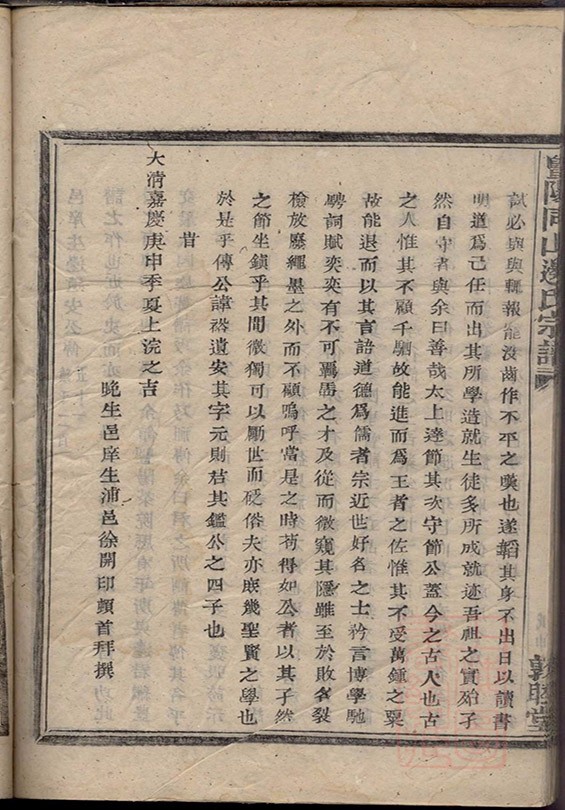 暨陽同山邊氏宗譜
試必與與輒報能沒齒作不平之嘆也遂韜其身不出日以讀書
明道爲己任而出其所學造就生徒多所成就迹吾祖之實殆子
然自守者與余曰善哉太上達節其次守節公蓋今之古人也古
之人惟其不顧千駟故能進而爲王者之佐惟其不受萬鍾之粟
故能退而以其言語道德爲儒者宗近世好名之士矜言博學馳
騁詞賦奕奕有不可羈馽之才及從而微窺其隱雖至於敗名裂
檢放廢繩墨之外而不顧嗚呼當是之時苟得如公者以其孑然
之節坐鎮乎其間微獨可以勵世而砭俗夫亦庶幾聖賢之學也
於是乎傳公諱裕遺安其字元則桰其鑑公之四子也
旹
大清嘉慶庚申季夏上浣之吉
晚生邑庠生浦邑徐開印頓首拜撰
敦睦堂